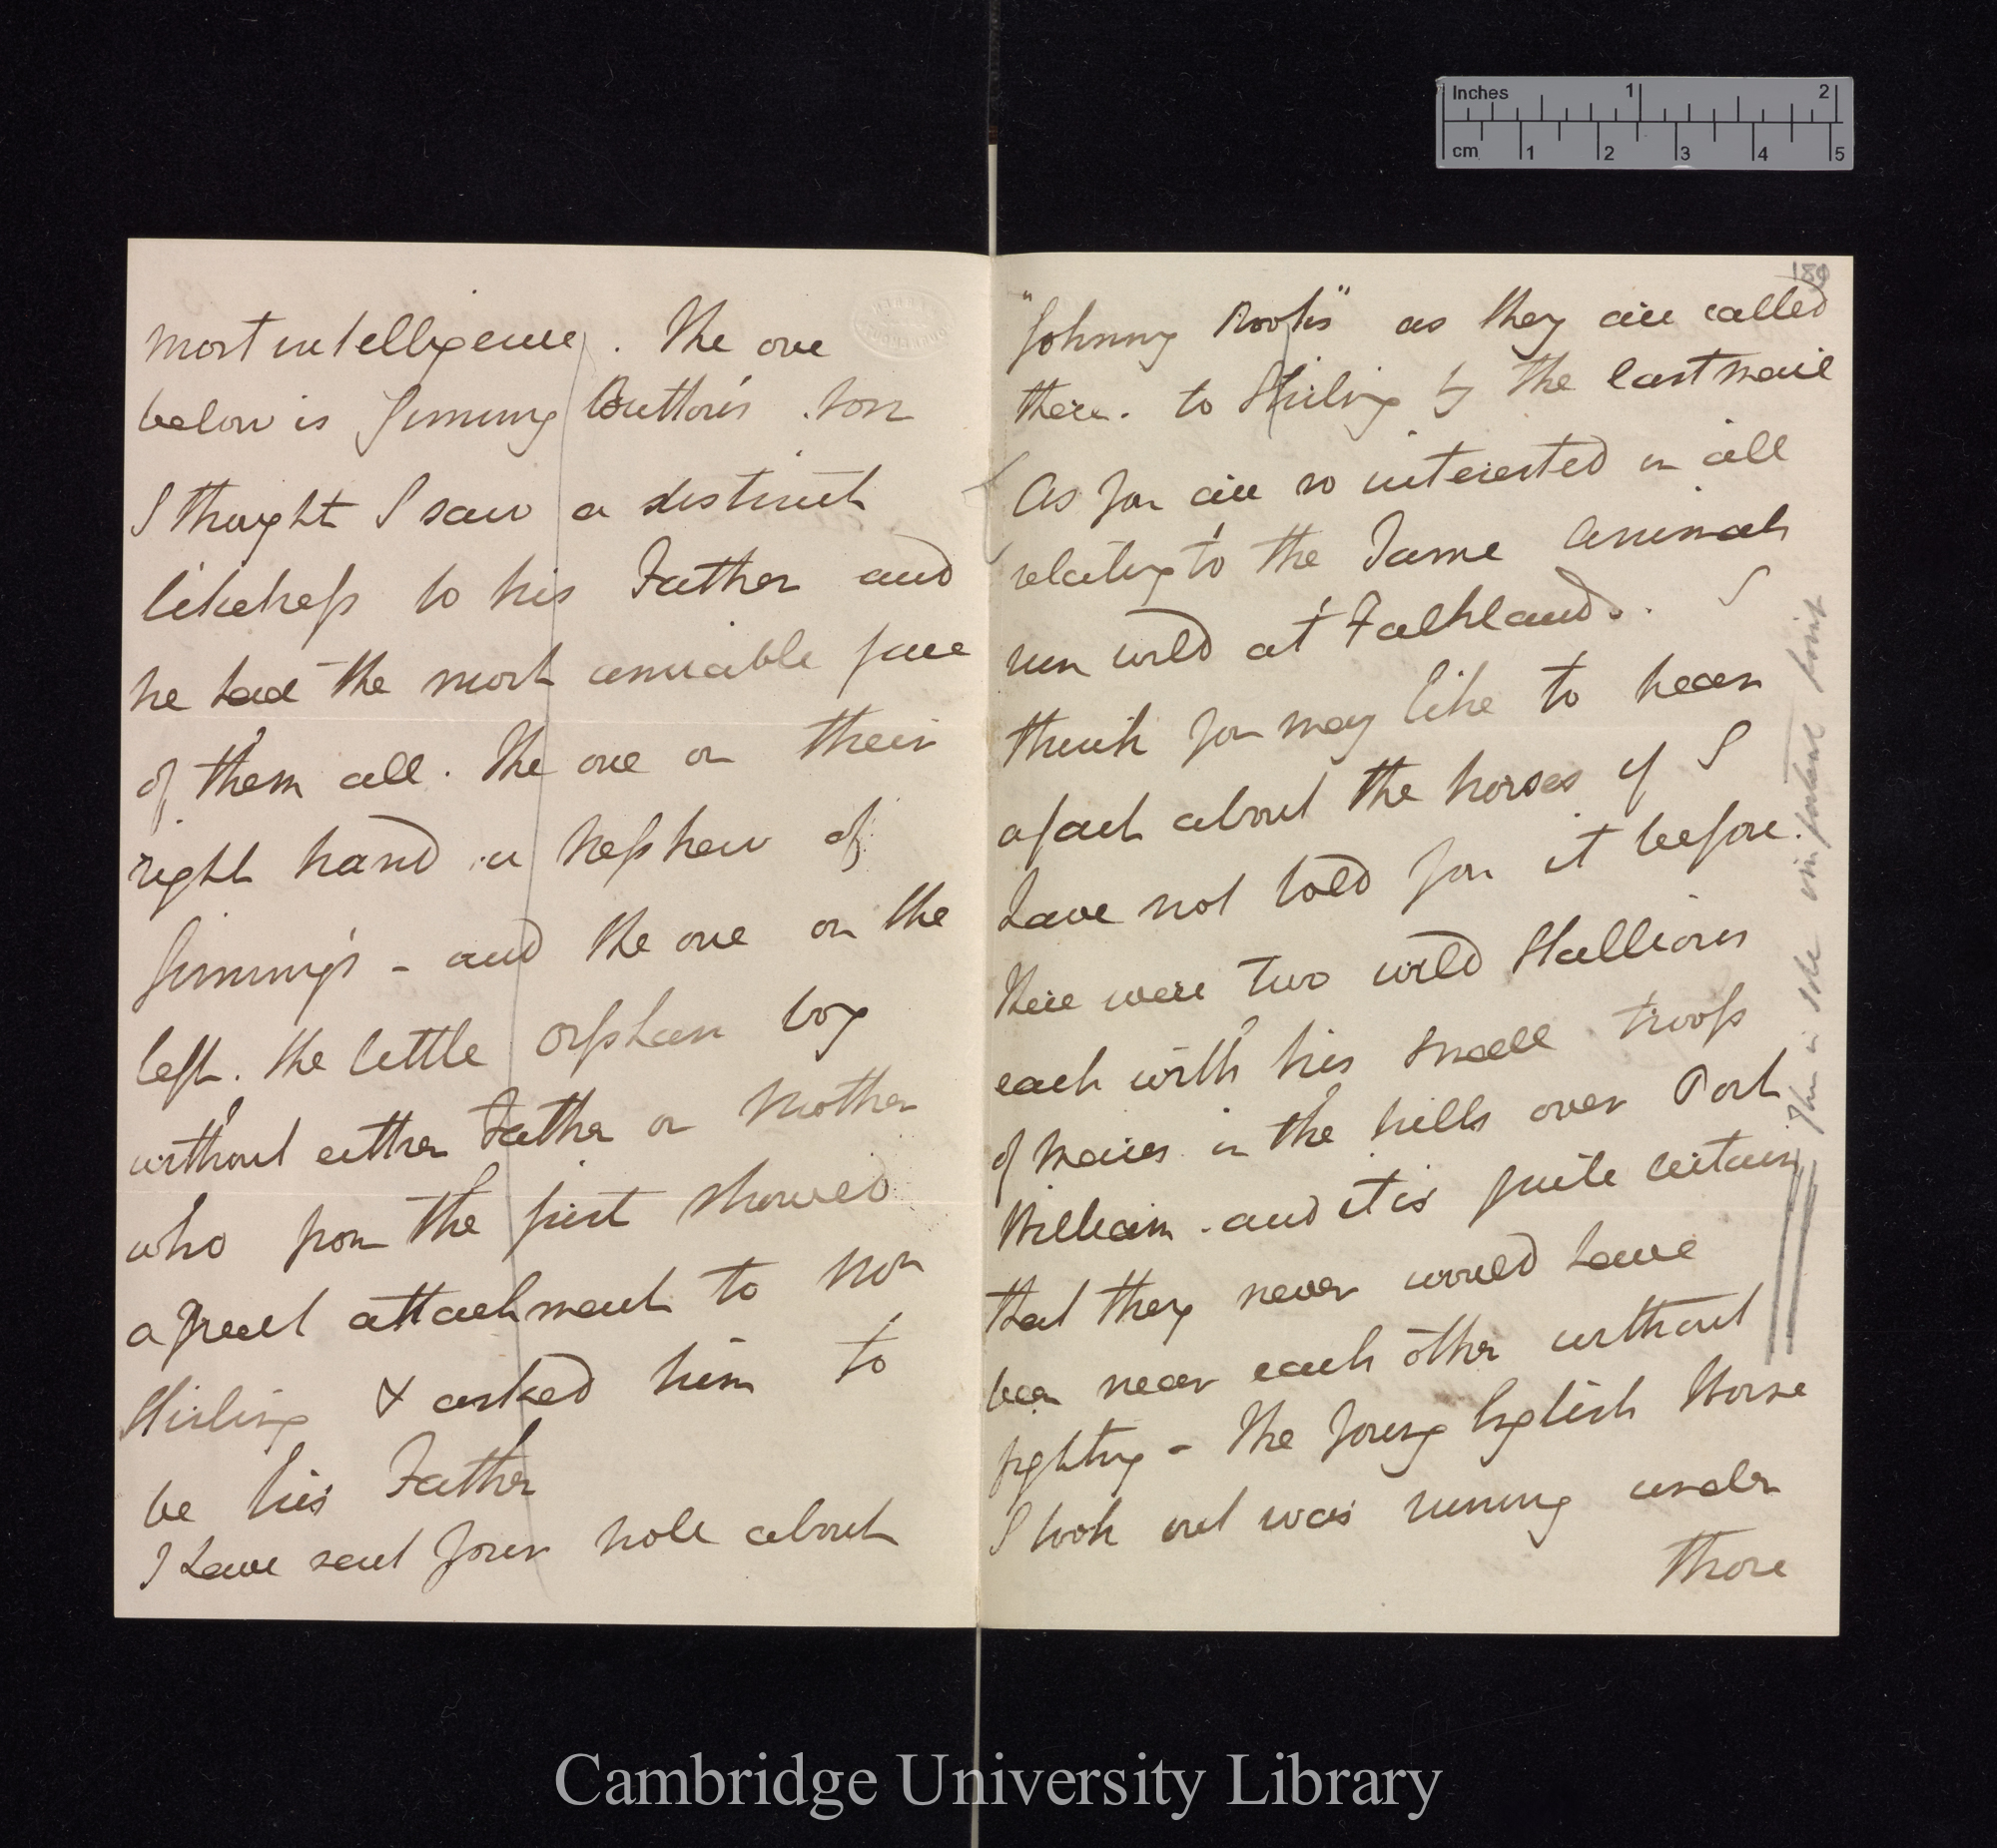 most intelligence. The one
below is Jimmy Button's son
I thought I saw a distinct
likeness to his Father and
he had the most amiable face
of them all. The one on their
right hand is nephew of
Jimmy's - and the one on the
left. the little orphan boy
without either Father or Mother
who from the first showed
a great attachment to Mr
Stirling & asked him to
be his Father
I have sent your note about
180
"Johnny Rooks" as they are called
there. to Stirling by the last mail
As you are so interested in all
relating to the Tame animals
run wild at Falklands. I
think you may like to hear
a fact about the horses if I
have not told you it before.
There were two wild Stallions
each with his small troop
of Mares in the hills over Port
William. and it is quite certain
that they never would have
been near each other without
fighting - The young English Horse
I took out was running under
those
This is side important point
Inches 1 2
cm 1 2 3 4 5
Cambridge University Library